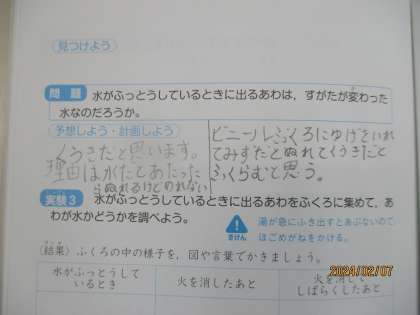 見つけよう
問題 水がふっとうしているときに出るあわは、すがたが変わった
水なのだろうか。
予想しよう・計画しよう
くうきだと思います。
理由は水だとあたった
らぬれるけどのれない
ビニールぶくろにゆげをいれ
てみずだとぬれてくうきだと
ふくらむと思う。
実験3 水がふっとうしているときに出るあわをふくろに集めて、あ
わが水かどうかを調べよう。
きけん
湯が急にふき出すとあぶないので
ほごめがねをかける。
〈結果〉ふくろの中の様子を、図や言葉でかきましょう。
水がふっとうして
いるとき
火を消したあと
火を消して
しばらくしたあと
2024/02/07